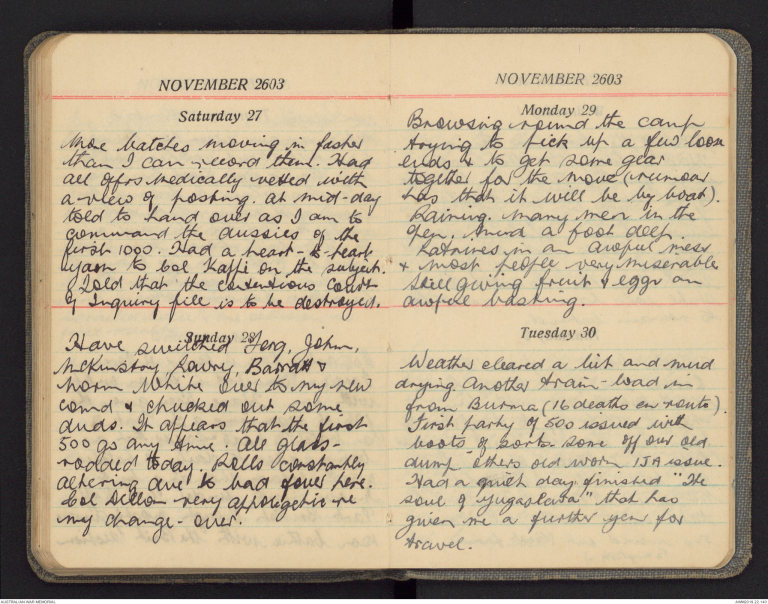 NOVEMBER 2603
Saturday 27
More batches moving in faster
than I can record them. Had
all offrs medically vetted with
a view of posting. At mid-day
told to hand over as I am to
command the Aussies of the
first 1000. Had a heart-to-heart
yarn to Col Kappe on the subject.
Told that the contentious Court
of Inquiry file is to be destroyed.
Sunday 28
Have switched Ferg, John,
McKinstry, Lowry, Barratt &
Norm White over to my new
comd & chucked out some
duds. It appears that the first
500 go any time. All glass-
rodded today. Rolls constantly
altering due to bad fever here.
Col Dillon very appologetic re
my change-over.
NOVEMBER 2603
Monday 29
Browsing round the camp
trying to pick up a few loose
ends & to get some gear
together for the move (rumour
has that it will be by boat).
Raining. Many men in the
open. Mud a foot deep.
Latrines in an awful mess
& most people very miserable
Still giving fruit & eggs an
awful bashing.
Tuesday 30
Weather cleared a bit and mud
drying. Another train-load in
from Burma (16 deaths en route).
First party of 500 issued with
boots of sorts - some off our old
dump others old worn IJA issue.
Had a quiet day, finished "The
soul of Yugoslavia" that has
given me a further yen for
travel.
AUSTRALIAN WAR MEMORIAL